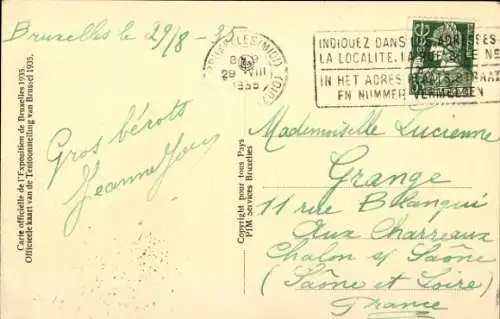 Bruxelles le 29/8-35
BRUXELLES (MIDI)
29 VIII
1935
INDIQUEZ DANS
LA LOCALITE, LA N°
IN HET ADRES PLAATS, STRAAT
EN NUMMER VERMELDEN
Gros bérots
Jeanne
Carte officielle de l'Exposition de Bruxelles 1935.
Officieele kaart van de Tentoonstelling van Brussel 1935.
Copyright pour tous Pays
PIM Services Bruxelles
Mademoiselle Lucienne
Grange
11 rue Blanqui
Aux Charreaux
Chalon s/ Saône
(Saône et Loire)
France